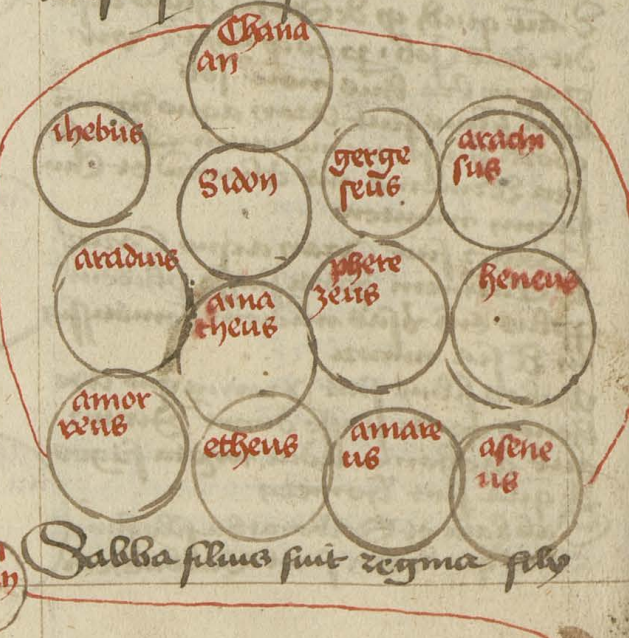 Chana
an
ihebus
Sidon
gerge
seus
arachi
sus
araduis
ama
theus
phere
zeus
heneus
amor
reus
etheus
amare
us
asene
us
Sabba filius fuit regme